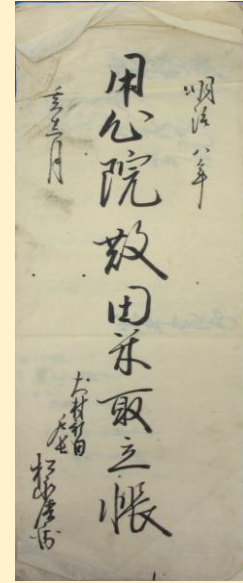 明治八年
用心院散田米取立帳
亥十二月
大村町田
戸長